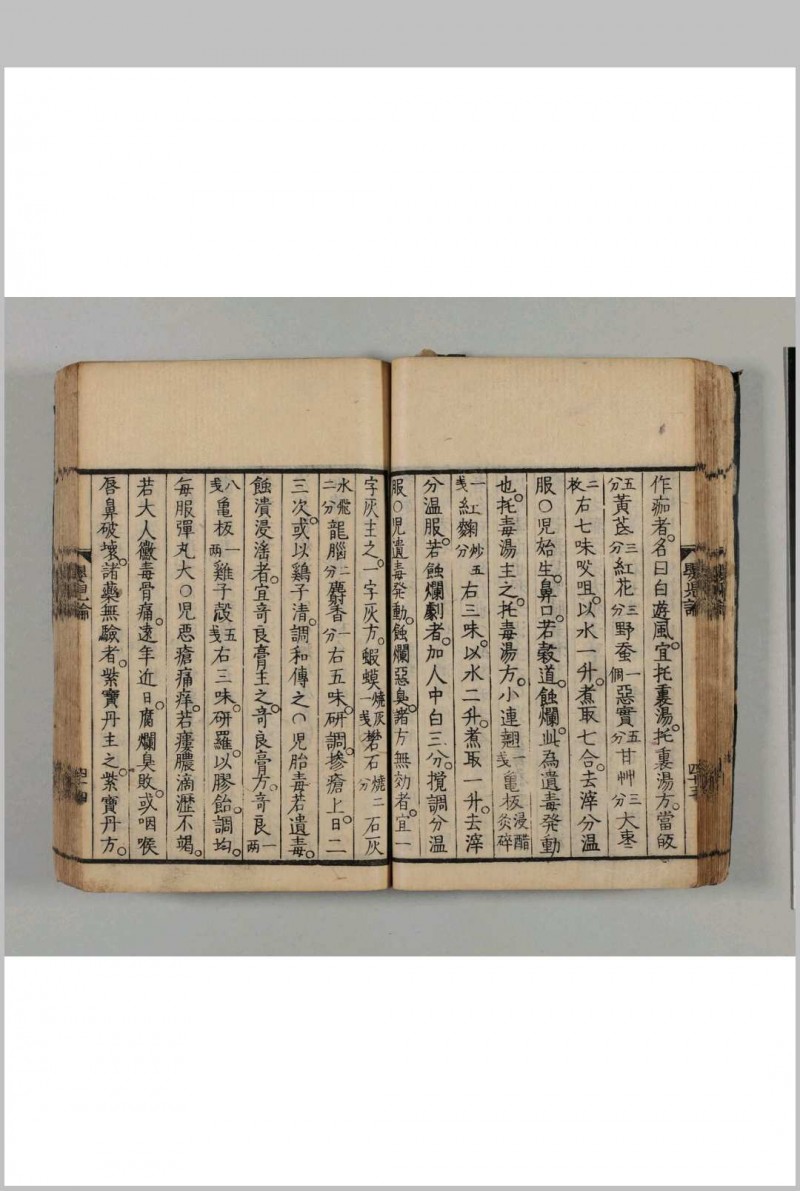 作痂者。名曰白遊風。宜托裏湯。托裏湯方。當皈
五分黃芪三分紅花三分野蚕一個惡實五分甘艸三分大枣
二枚右七味㕮咀。以水一升。煮取七合。去滓分温
服〇児始生。鼻口。若穀道。蝕爛。此為遺毒発動
也。托毒湯主之。托毒湯方。小連翹一戔亀板浸醋灸碎
一戔紅麹炒五分右三味。以水二升。煮取一升。去滓
分温服。若蝕爛劇者。加人中白三分。攪調分温
服〇児遺毒発動。蝕爛惡臭。諸方無効者。宜一
字灰主之。一字灰方。蝦蟆燒灰一戔礬石燒二分石灰
水飛二分龍腦二分麝香一分右五味。研調。摻瘡上。日二
三次。或以鷄子清。調和傅之〇児胎毒若遺毒。
蝕潰浸滛者。宜竒良膏主之。竒良膏方。竒良一兩
八戔亀板一兩雞子殼五戔右三味。研羅。以膠飴調均。
毎服彈丸大〇児悪瘡痛痒。若瘻膿滴瀝不竭。
若大人黴毒骨痛。遠年近日。腐爛臭敗。或咽喉
唇鼻破壞。諸藥無驗者。紫寶丹主之。紫寶丹方。